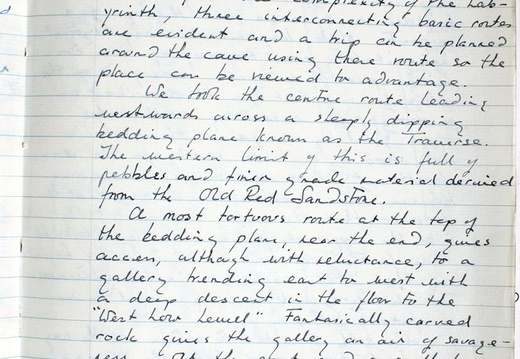 complexity of the Lab-
yrinth, three interconnecting basic routes
are evident and a trip can be planned
around the cave using these route so the
place can be viewed to advantage.
We took the centre route leading
westwards across a steeply dipping
bedding plane known as the Traverse.
The western limit of this is full of
pebbles and finer grade material derived
from the Old Red Sandstone.
A most tortuous route at the top of
the bedding plane, near the end, gives
access, although with reluctance, to a
gallery trending east to west with
a deep descent in the floor to the
"West Low Level" Fantastically carved
rock gives the gallery an air of savage-
ness. At the